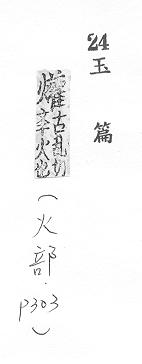 24
玉篇
爟古乱切
舉火也
(火部·
P303)